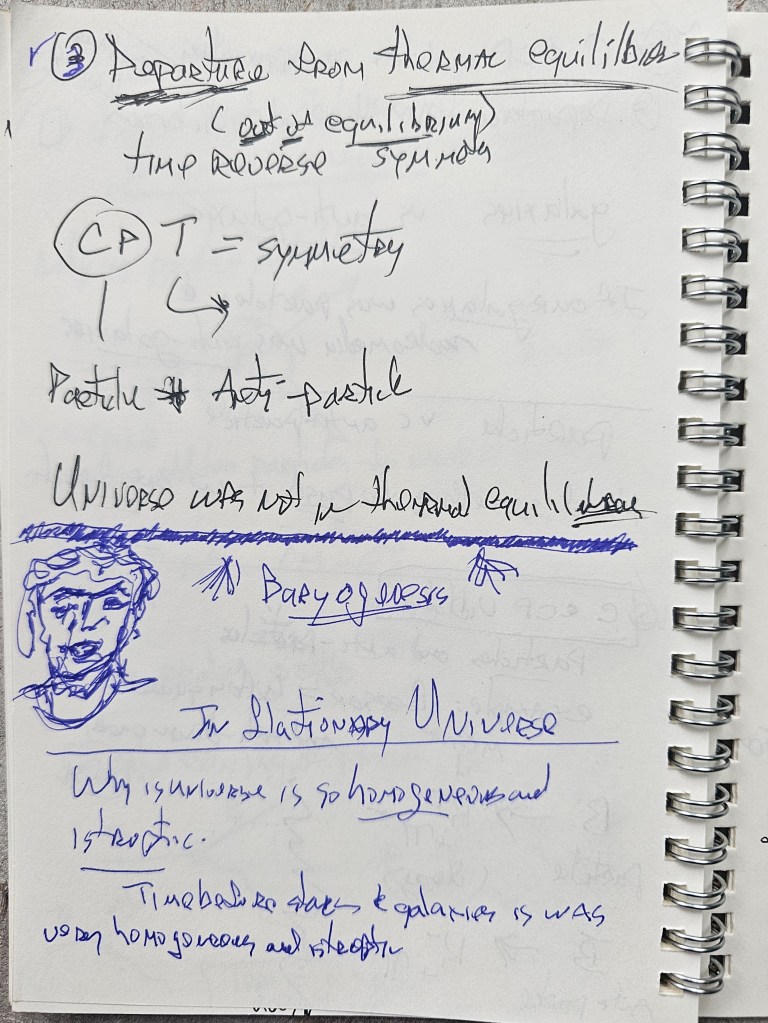 ③ Departure from thermal equilibrium
(out of equilibrium)
time reverse symmetry
CP T = symmetry
Particle Anti-particle
Universe was not in thermal equilibrium
Baryogenesis
Inflationary Universe
Why is universe is so homogeneous and
istroptic.
Time before stars & galaxies is was
very homogeneous and